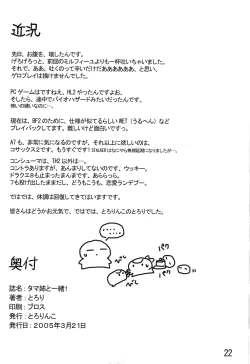 近況
先日、お腹を、壊したんです。
げろげろっと、前回のミルフィーユよりも一杯吐いちゃいました。
それで、ああ、吐くのって辛いだけだああああああ、と思い、
ゲロプレイは描けませんでした。
PCゲームはですねえ、HL2やったんですよお。
そしたら、途中でバイオハザードみたいだったんです。
怖いの嫌いなのに…。
現在は、BF2のために、仕様が似てるらしいNET(うるへん)など
プレイバックしてます。難しいけど面白いですっ。
A7も、非常に気になるのですが、それ以上に欲しいのは、
コサックス2です。もうすぐです!
コンシューマは、TH2以外は…。
コントラありますが、あんまりしてないのです、ウッキー。
ドラクエ8も止まったまんまです。あらららら。
7も投げ出したままだし、どうもこうも、恋愛ランデブー。
ではでは、体調は回復してきてはいますです。
皆さんはどうかお元気で、ではでは、とろりんこのとろりでした。
パク
パク
奥付
誌名:タマ姉と一緒!
著者:とろり
印刷:プロス
発行:とろりんこ
発行日:2005年3月21日
22